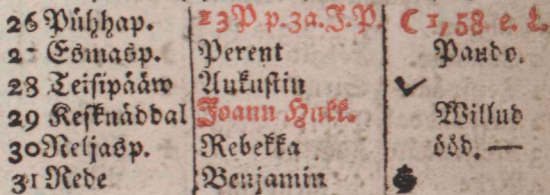 26 Pühhap. 13 P p. 3a. J. P. ☾ 1, 58 e. L.
27 Esmasp. Perent Pando.
28 Teisipääw Aukustin
29 Kesknäddal Joann Hukk. Willud
30 Neljasp. Rebekka ööd. —
31 Rede Benjamin